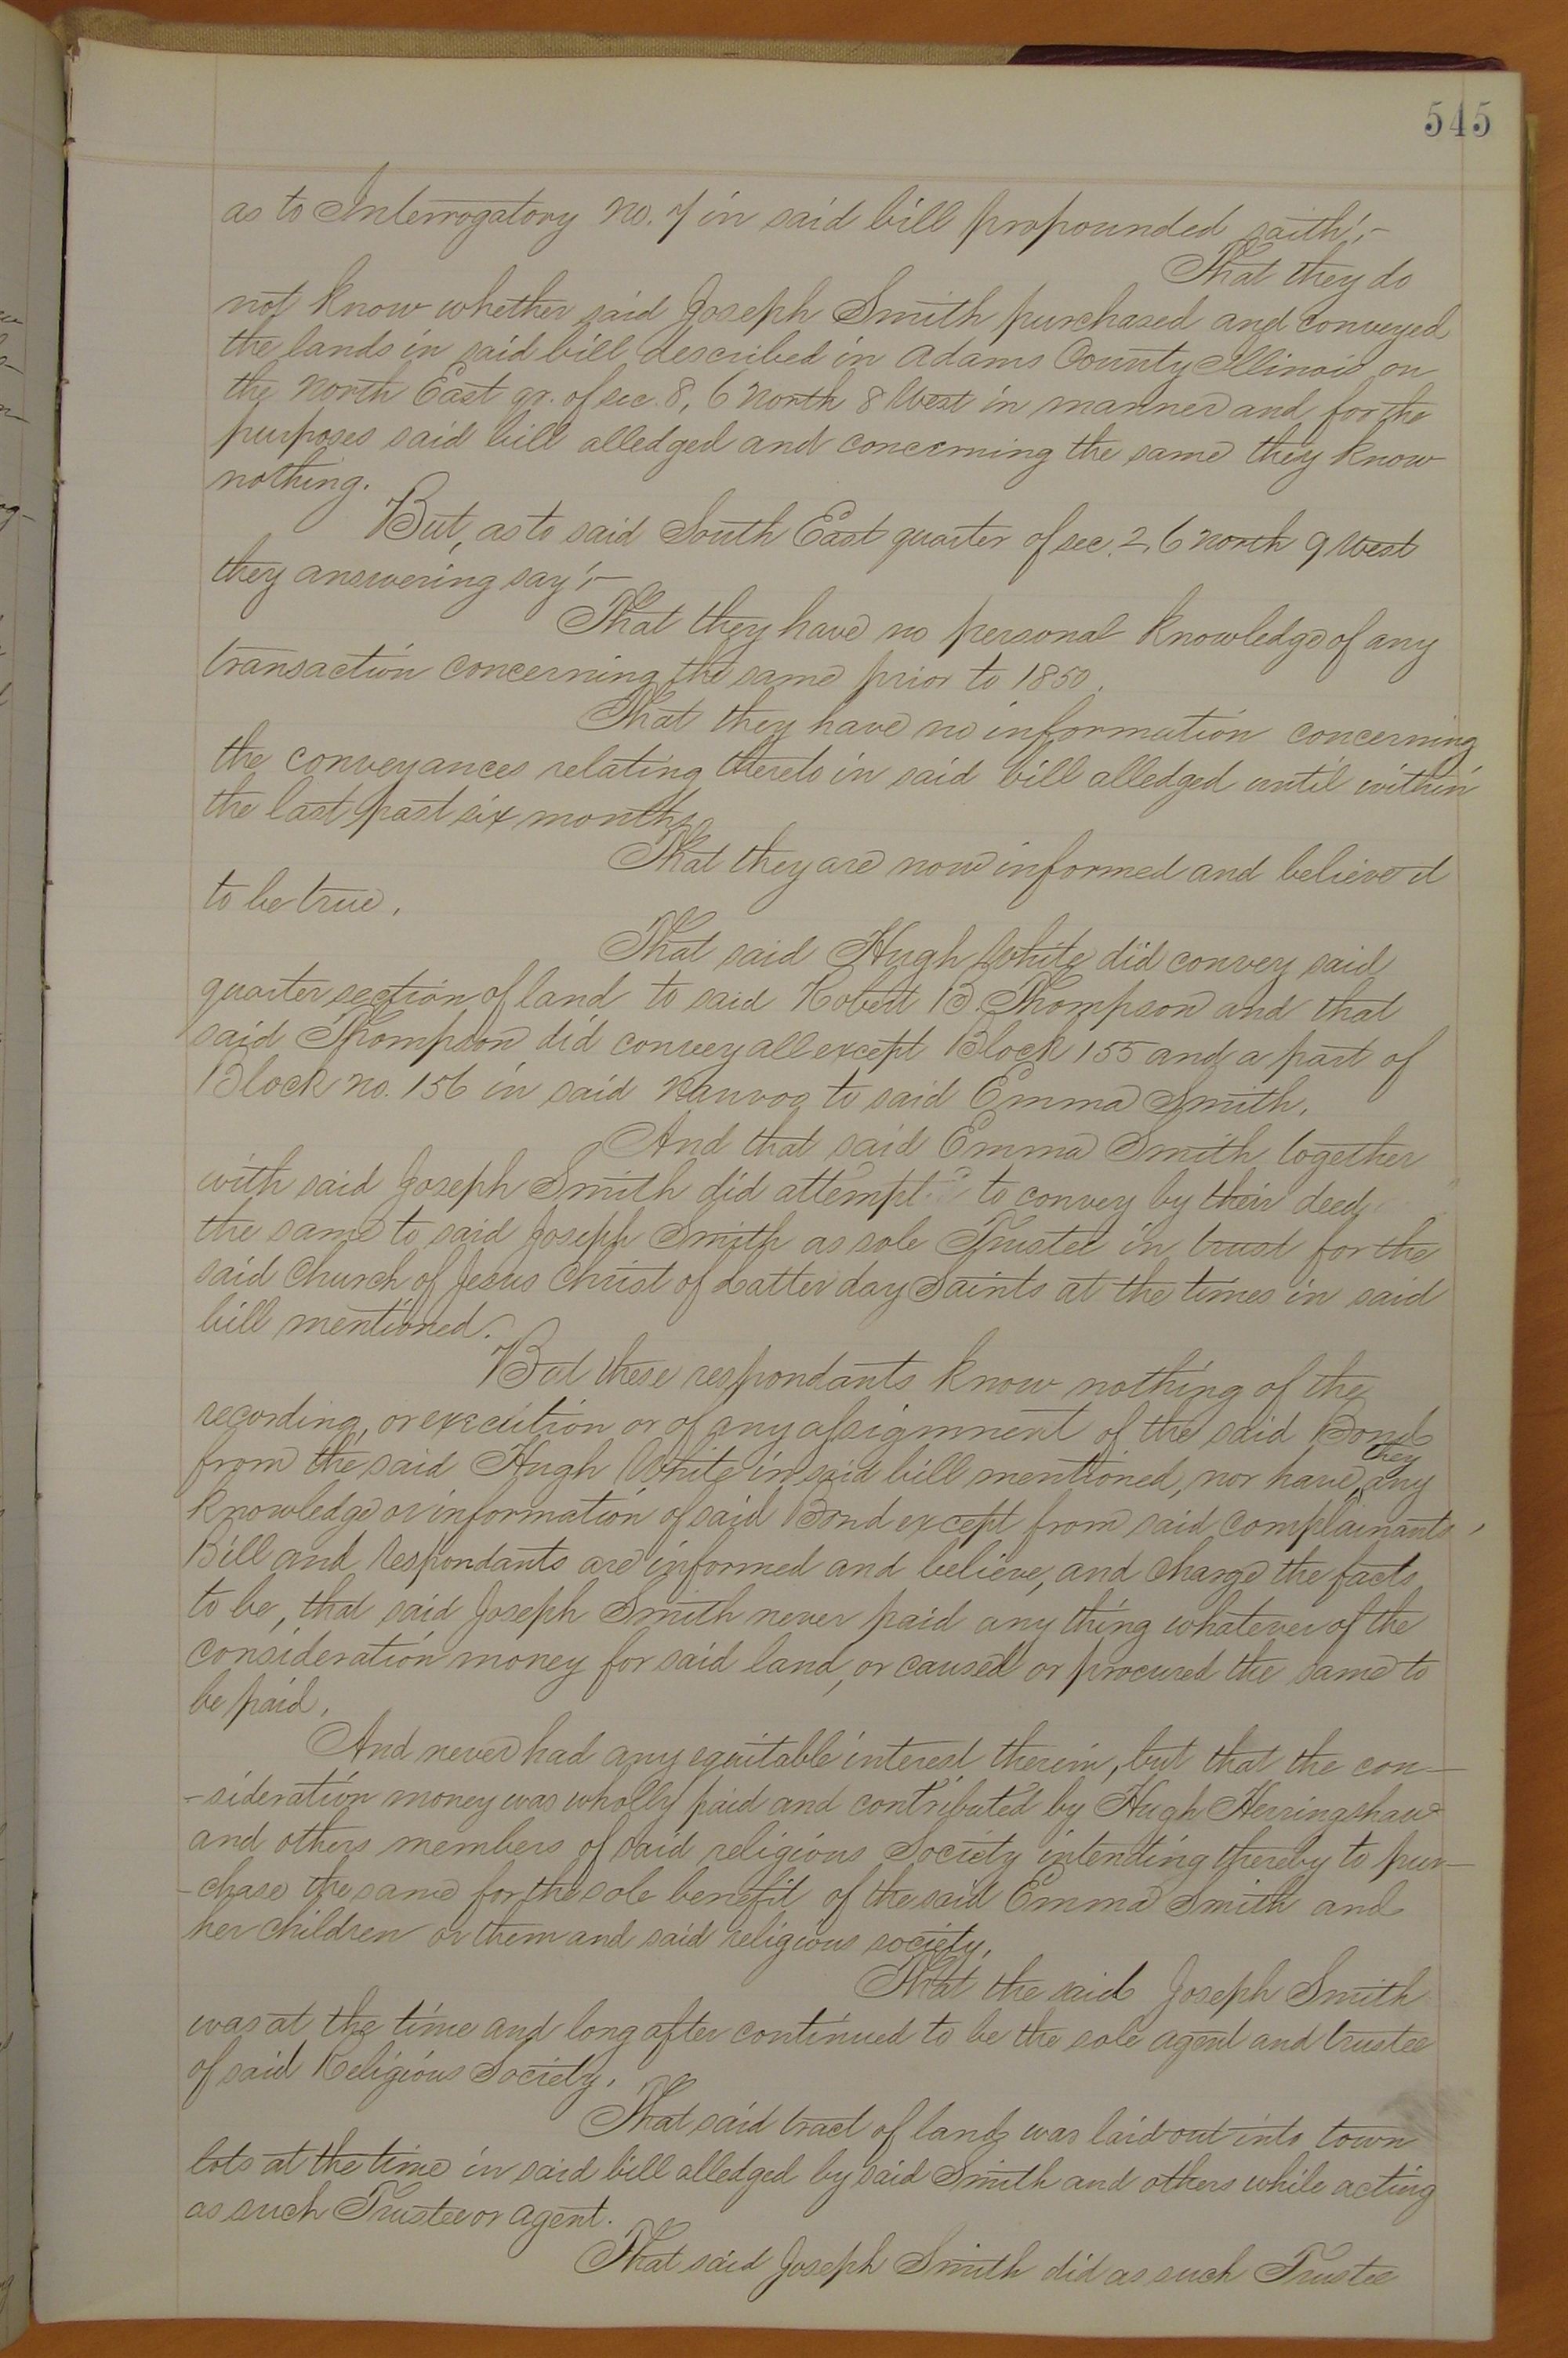 545
as to Interrogatory No. 7 in said bill propounded saith;-
That they do
not know whether said Joseph Smith purchased and conveyed
the lands in said bill described in Adams County Illinois on
the North East qr. of sec. 8, 6 North 8 West in manner and for the
purposes said bill alledged and concerning the same they know
nothing.
But, as to said South East quarter of sec. 2, 6 North 9 West
they answering say;-
That they have no personal knowledge of any
transaction concerning the same prior to 1850.
That they have no information concerning
the conveyances relating thereto in said bill alledged until within
the last past six months
That they are now informed and believe it
to be true.
That said Hugh White did convey said
quarter section of land to said Robert B. Thompson and that
said Thompson did convey all except Block 155 and a part of
Block No. 156 in said Nauvoo to said Emma Smith.
And that said Emma Smith together
with said Joseph Smith did attempt to convey by their deed
the same to said Joseph Smith as sole Trustee in trust for the
said Church of Jesus Christ of Latter day Saints at the times in said
bill mentioned.
But these respondants know nothing of the
recording, or execution or of any assignment of the said Bond
from the said Hugh White in said bill mentioned, nor have they any
knowledge or information of said Bond except from said complainants'
Bill and respondants are informed and believe, and charge the facts
to be, that said Joseph Smith never paid any thing whatever of the
consideration money for said land, or caused or procured the same to
be paid.
And never had any equitable interest therein, but that the con-
-sideration money was wholly paid and contributed by Hugh Herringshaw
and others members of said religious Society intending thereby to pur-
-chase the same for the sole benefit of the said Emma Smith and
her children or them and said religious society.
That the said Joseph Smith
was at the time and long after continued to be the sole agent and trustee
of said Religious Society.
That said tract of land was laid out into town
lots at the time in said bill alledged by said Smith and others while acting
as such Trustee or agent.
That said Joseph Smith did as such Trustee